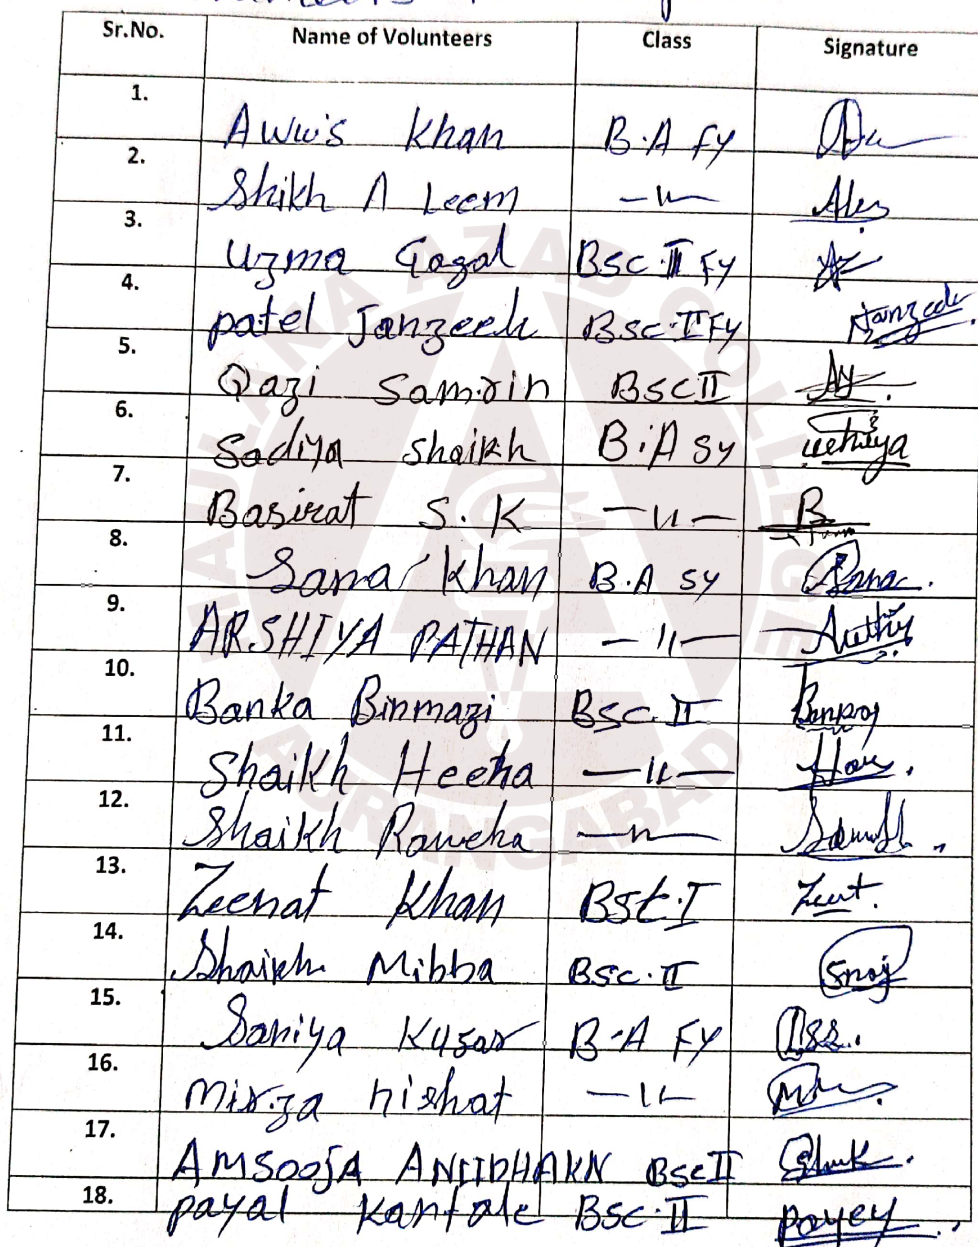 Sr.No. Name of Volunteers Class Signature
1. Awwis Khan B.A FY
2. Shikh A Leem —〃—
3. Uzma Gazal BSC.II FY
4. patel Janzeeh BSC.II FY
5. Qazi Samrin BSC II
6. Sadiya Shaikh B.A SY
7. Basirat S.K —〃— B
8. Sana Khan B.A SY Sana
9. ARSHIYA PATHAN —〃—
10. Banka Binmazi BSC.II
11. Shaikh Heeha —〃—
12. Shaikh Raweha —〃—
13. Zeenat Khan BSC.I
14. Shaikh Mibba BSC.II
15. Saniya Kusar B.A FY
16. Mirza nishat —〃—
17. AMSOOJA BSC II
18. payal Kantole BSC.II payey
MAULANA AZAD COLLEGE
AURANGABAD